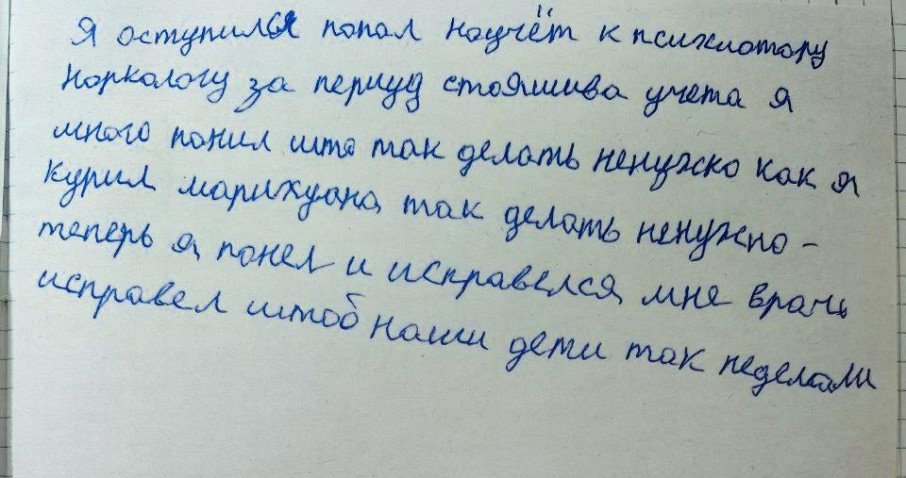 Я оступился попал научёт к психиатору
Наркологу за период стоявшива учета я
много понил што так делать ненужно как я
курил марихуана так делать ненужно -
теперь я понел и исправелся мне врачь
исправел штоб наши дети так неделали